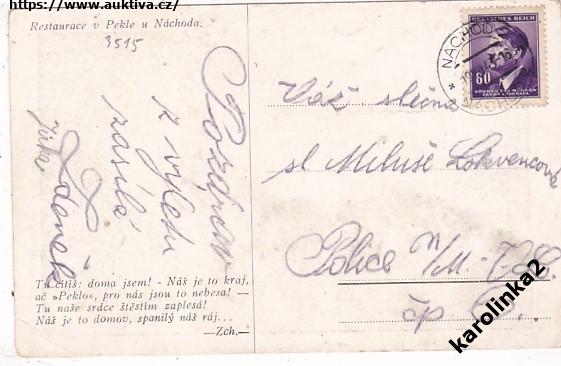 https://www.auktiva.cz/
Restaurace v Pekle u Náchoda.
3515
Pozdrav
z výletu
zasílá
Zdeněk
Jirka
Tu cítíš: doma jsem! - Náš je to kraj,
ač »Peklo«, pro nás jsou to nebesa! —
Tu naše srdce štěstím zaplesá!
Náš je to domov, spanilý náš ráj...
—Zch.—
NÁCHOD
DEUTSCHES REICH
60
BÖHMEN U. MÄHREN
ČECHY A MORAVA
Váž slečna
sl Miluše Lokvencová
Police n/M.
čp
karolinka2